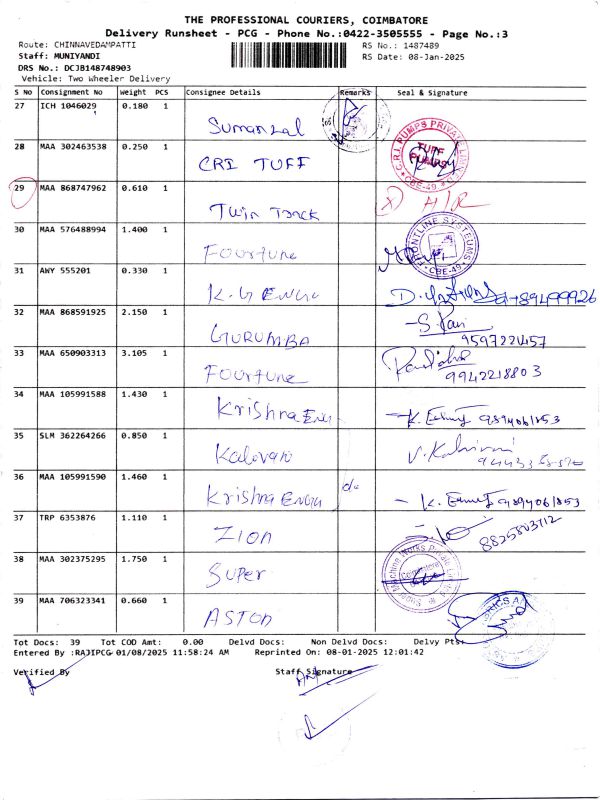 THE PROFESSIONAL COURIERS, COIMBATORE
Delivery Runsheet - PCG - Phone No.:0422-3505555 - Page No.:3
Route: CHINNAVEDAMPATTI RS No.: 1487489
Staff: MUNIYANDI RS Date: 08-Jan-2025
DRS No.: DCJB148748903
Vehicle: Two Wheeler Delivery
S No Consignment No Weight PCS Consignee Details Remarks Seal & Signature
27 ICH 1046029 0.180 1 Sumangal
28 MAA 302463538 0.250 1 CRI TUFF C.R.I. PUMPS PRIVATE TUFF PUMPS CBE-49
29 MAA 868747962 0.610 1 Twin Track
30 MAA 576488994 1.400 1 Fourtune FRONTLINE SYSTEUMS CBE-49
31 AWY 555201 0.330 1 K.G ENGG
32 MAA 868591925 2.150 1 GURUMBA S. Ravi
9597221457
33 MAA 650903313 3.105 1 Fourtune 9942218803
34 MAA 105991588 1.430 1 Krishna Eng K.
35 SLM 362264266 0.850 1 Kalavani V.
36 MAA 105991590 1.460 1 Krishna Engg K.
37 TRP 6353876 1.110 1 ZION 8825803712
38 MAA 302375295 1.750 1 SUPER Machine Works Private Coimbatore
39 MAA 706323341 0.660 1 ASTON
Tot Docs: 39 Tot COD Amt: 0.00 Delvd Docs: Non Delvd Docs: Delvy Pts:
Entered By :RAJIPCG 01/08/2025 11:58:24 AM Reprinted On: 08-01-2025 12:01:42
Verified By Staff Signature